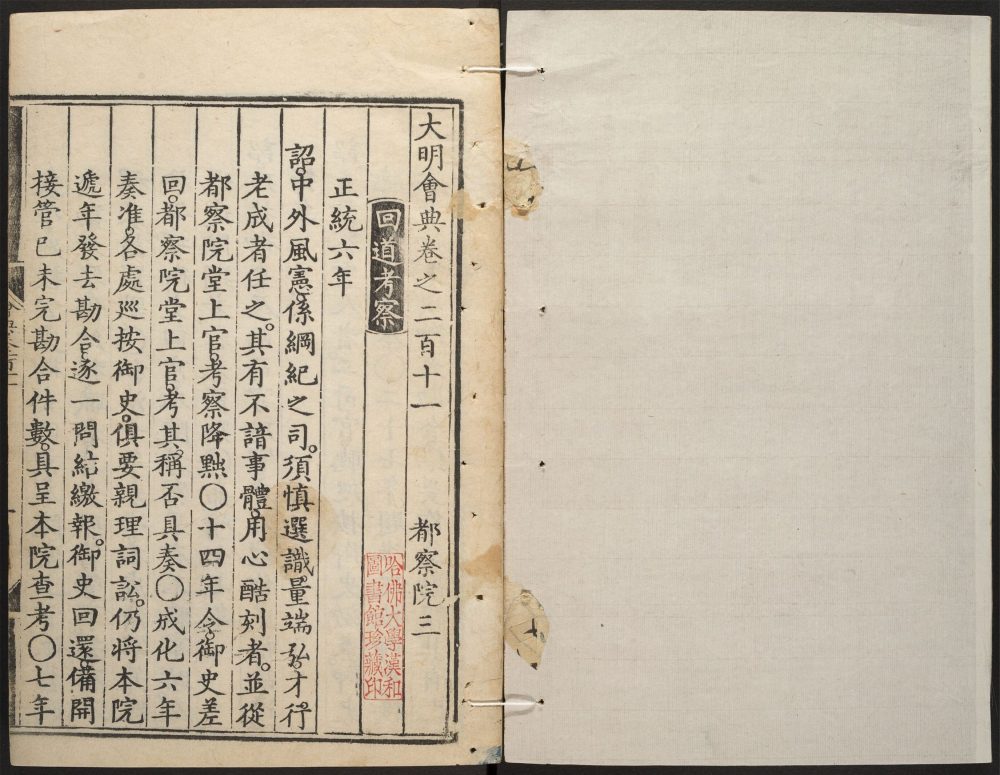 大明會典卷之二百十一　都察院三
回道考察
正統六年
詔中外風憲係綱紀之司須慎選識量端弘才行
老成者任之其有不諳事體用心酷刻者並從
都察院堂上官考察降黜〇十四年令御史差
回都察院堂上官考其稱否具奏〇成化六年
奏准各處廵按御史俱要親理詞訟仍將本院
遞年發去勘合逐一問結繳報御史回還備開
接管已未完勘合件數具呈本院查考〇七年
哈佛大學漢和
圖書館珍藏印